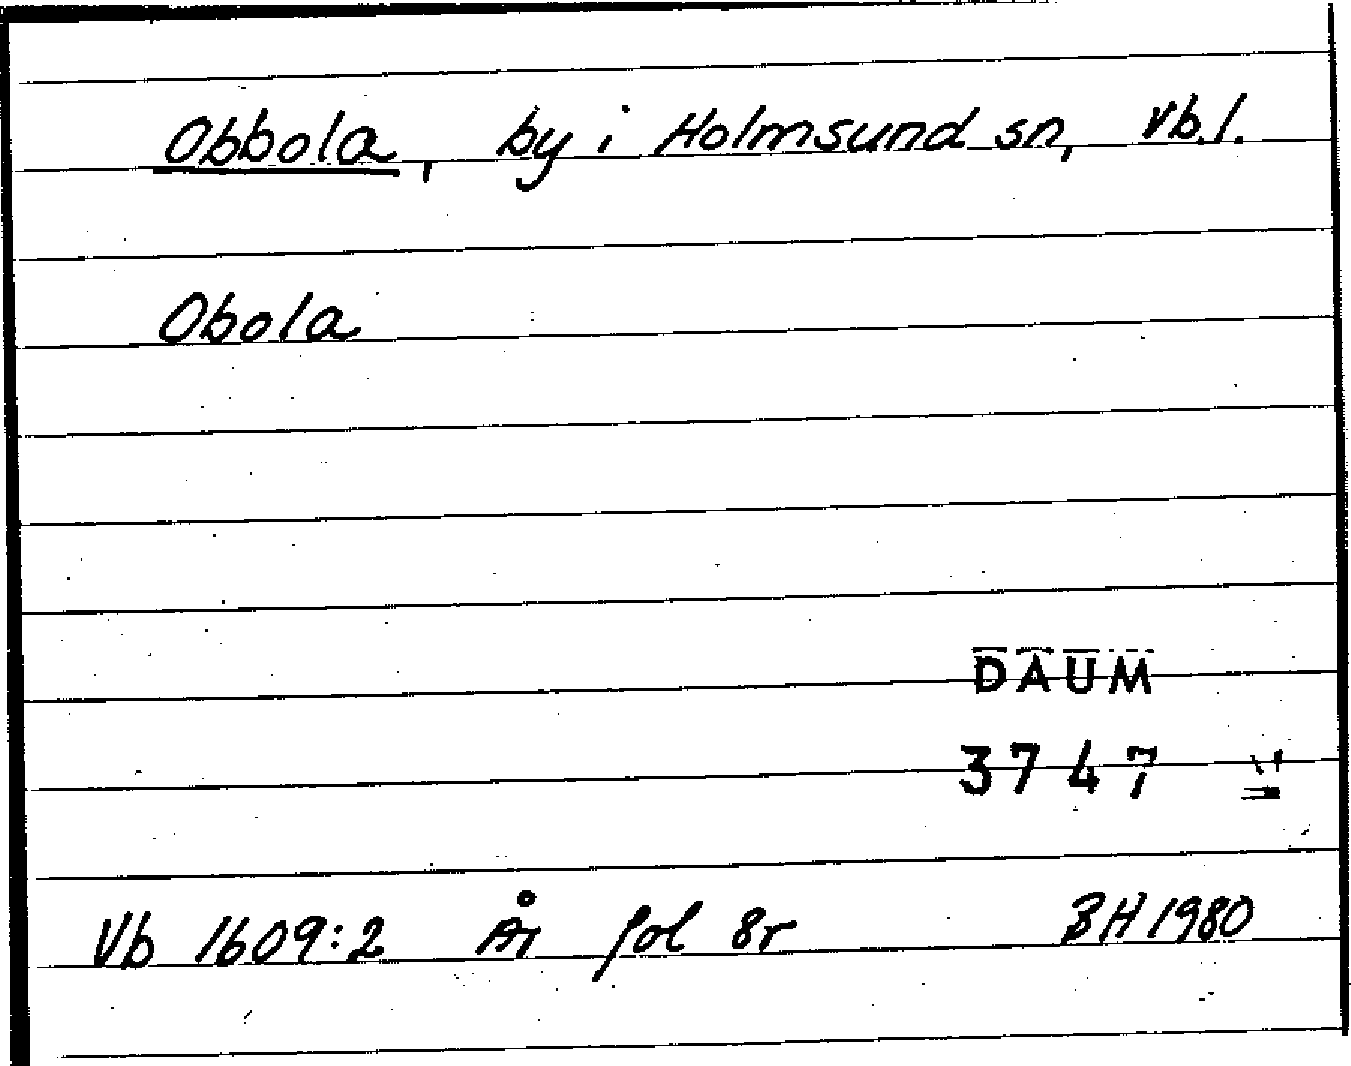 Obbola, by i Holmsund sn, Vb.l.
Obola
DAUM
3747
Vb 1609:2 Är fol 8r BH 1980